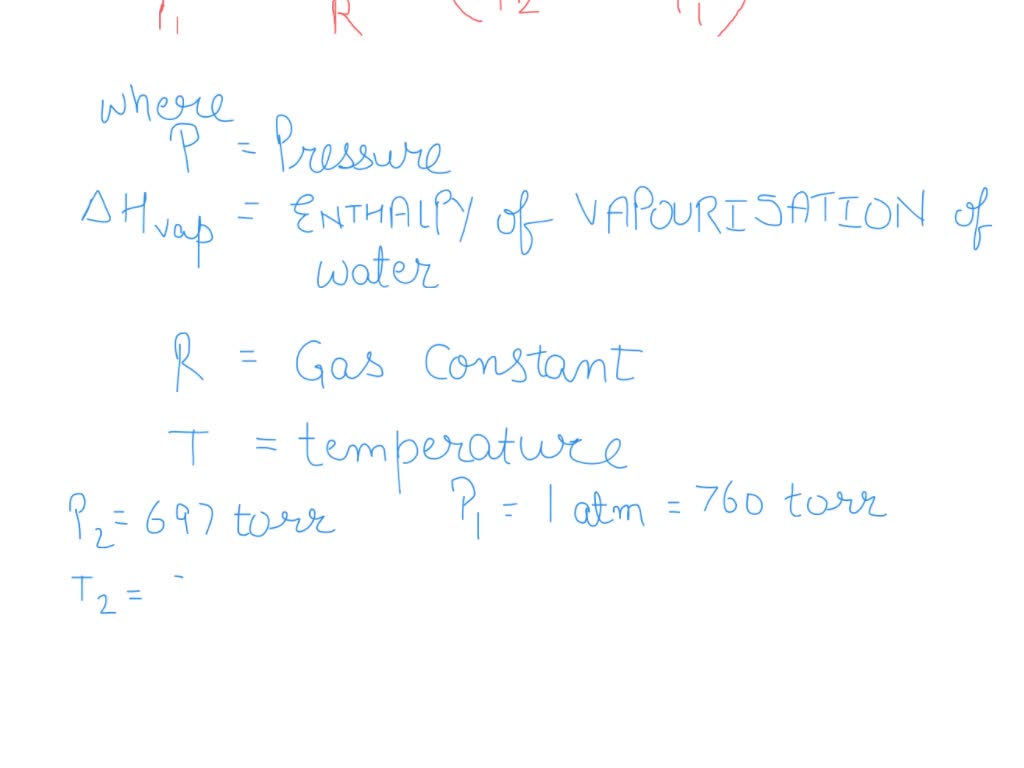 P1 R (T2 T1)
where
P = Pressure
ΔHvap = ENTHALPY of VAPOURISATION of
water
R = Gas Constant
T = temperature
P2 = 697 torr P1 = 1 atm = 760 torr
T2 =